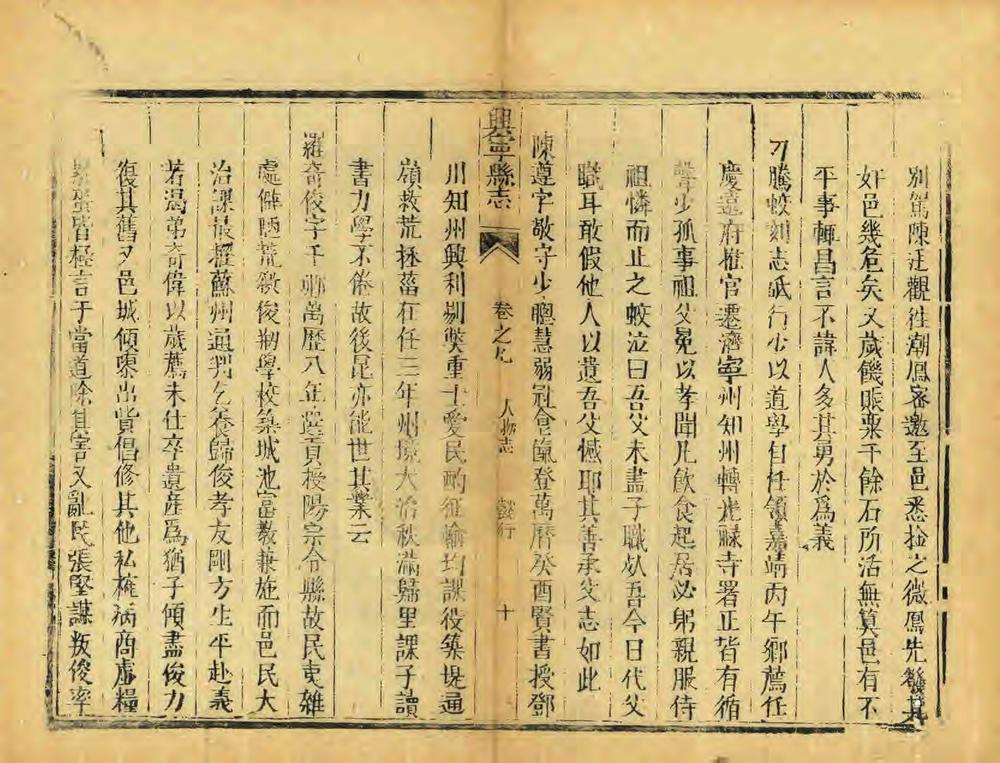 別駕陳廷觀徃潮鳳密邀至邑悉捡之微鳳先發其
奸邑幾危矣又歲饑賑粟千餘石所活無算邑有不
平事輒昌言不諱人多其勇於為義
刁騰蛟刻志砥行少以道學自任領嘉靖丙午鄉薦任
慶遠府推官遷濟寧州知州轉光祿寺署正皆有循
聲少孤事祖父冕以孝聞凡飲食起居必躬親服侍
祖憐而止之蛟泣曰吾父未盡子職故吾今日代父
職耳敢假他人以遺吾父憾耶其善承父志如此
陳遵字敬守少聰慧弱冠食餼登萬曆癸酉賢書授鄧
興寧縣志 卷之 人物志 懿行 十
川知州興利剔獘重士愛民酌征輸均課役築堤通
嶺救荒拯菑在任三年州境大治秩滿歸里課子讀
書力學不倦故後昆亦能世其業云
羅奇俊字千 萬歷八年選貢授陽宗令縣故民夷雜
處僻陋荒 俊剏學校築城池富教兼施而邑民大
治課最擢蘇州通判乞養歸俊孝友剛方生平赴義
若渴弟奇偉以歲薦未仕卒遺產為猶子傾盡俊力
復其舊又邑城傾 出貲倡修其他私榷病商虛糧
皆極言于當道除其害又亂民張堅謀叛俊率